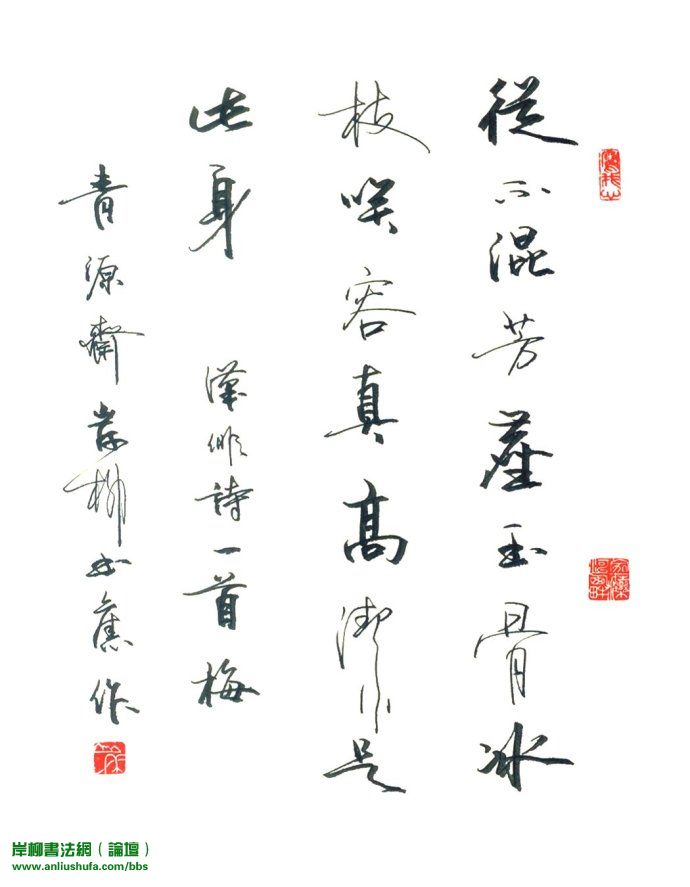 從不混芳塵玉骨冰
枝咲容真高潔是
此身 漢俳詩一首梅
青源齋岸柳書舊作
岸柳書法網（論壇）
www.anliushufa.com/bbs